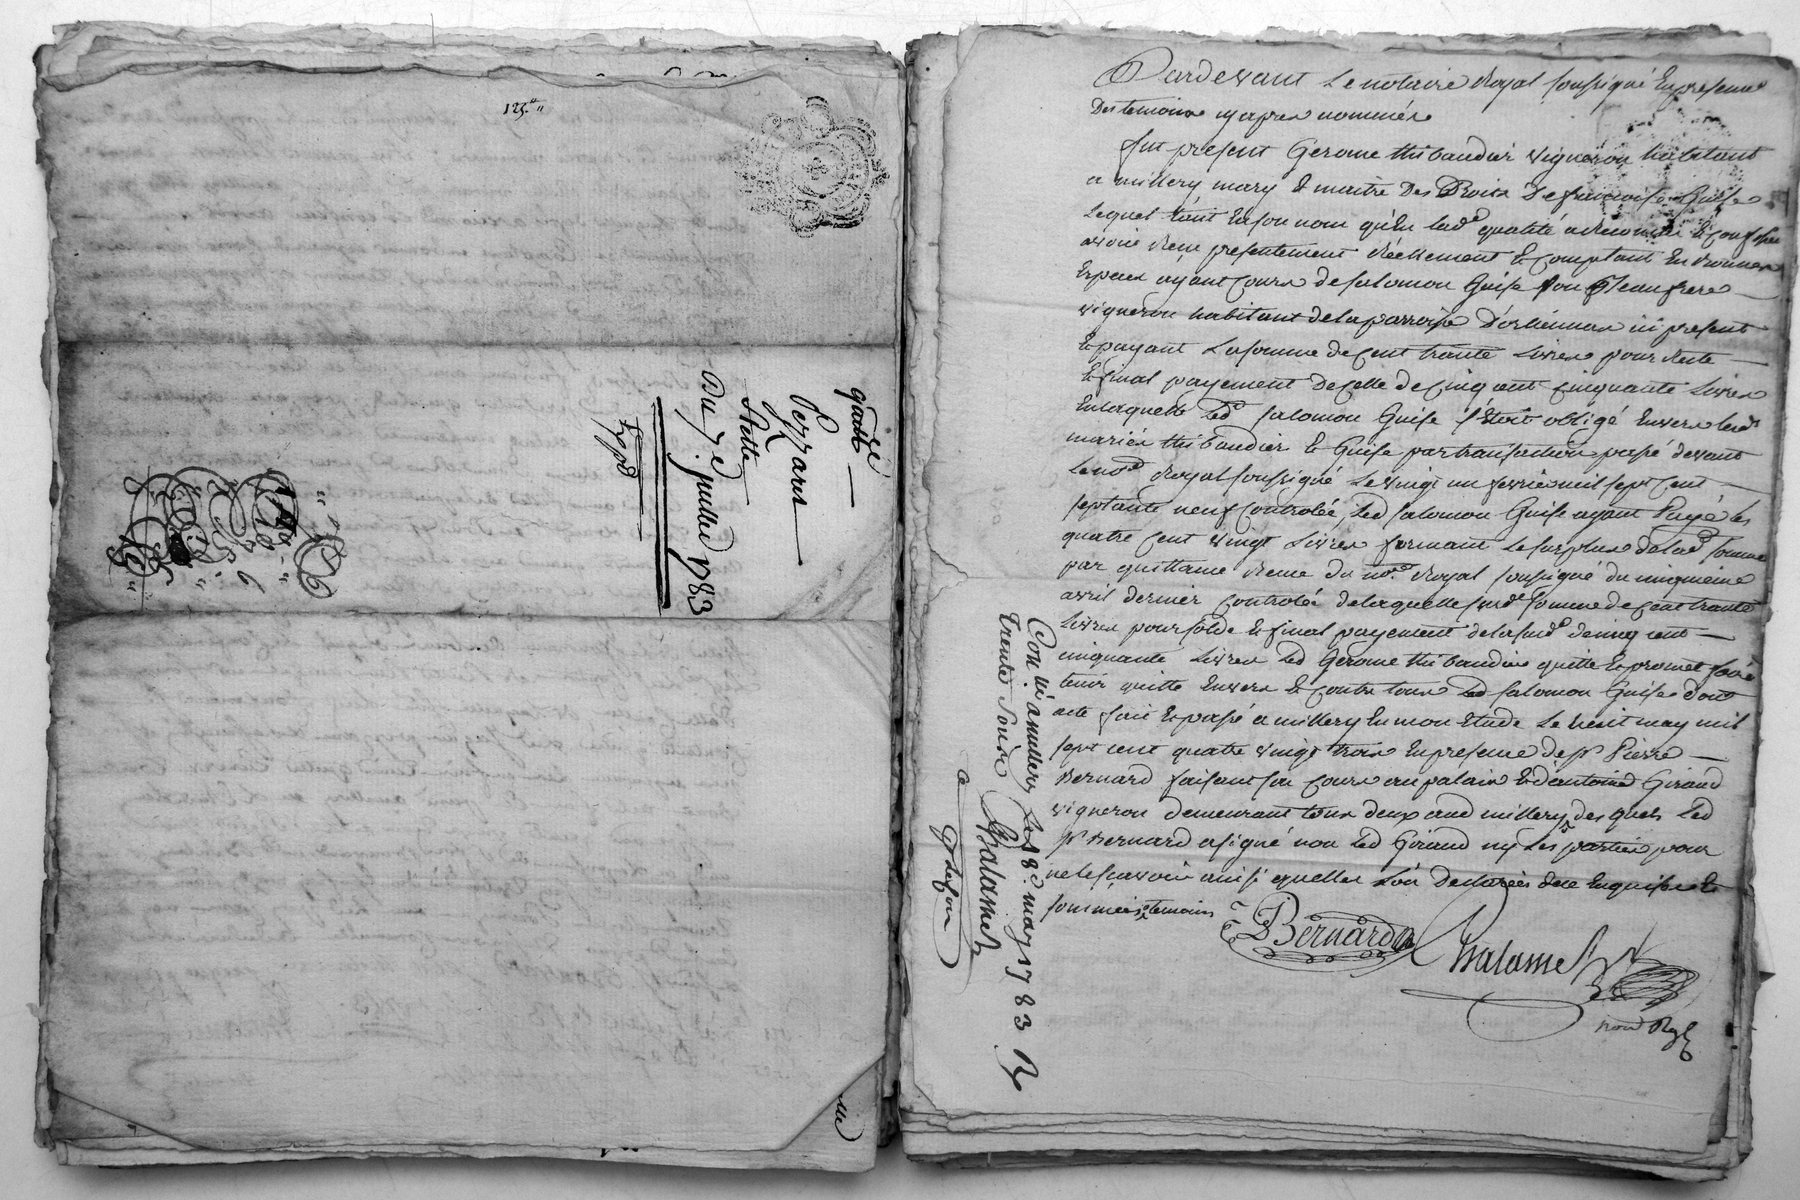 125.
quittce
Pezzaret
Du 7e. juillet 1783
Expd
Pardevant Le notaire Royal soussigné En presence
Des temoins cy apres nommés
fut present Gerome thibaudier vigneron habitant
a millery mary & maitre Des Droits De francoise Guise
Lequel tant En son nom qu'En lade qualité a Reconnu & confessé
avoir Reçu presentement Réellement & comptant En bonnes
Especes ayant cours de salomon Guise son Beaufrere
vigneron habitant de la parroisse D'orliennas ici present
& payant La somme de Cent trante Livres pour Reste
& final payement De celle de Cinq cent cinquante Livres
En laquelle Led salomon Guise s'étoit obligé Envers lesds
mariés thibaudier & Guise par transaction passé devant
Le nore Royal soussigné Le vingt un fevrier mil sept cent
septante neuf Controlée, Led salomon Guise ayant Payé les
quatre Cent vingt Livres formant Le surplus de lade somme
par quittance Recue du nore Royal soussigné du cinquieme
avril dernier Controlée de laquelle susde somme de Cent trante
Livres pour solde & final payement de la susde de cinq cent
cinquante Livres Led Gerome thibaudier quitte & promet faire
tenir quitte Envers & contre tous Led salomon Guise dont
acte fait & passé a millery En mon Etude Le huit may mil
sept cent quatre vingt trois En presence de sr Pierre
Bernard faisant son cours au palais & d'antoine Giraud
vigneron demeurant tous deux aud millery, des quels Led
sr Bernard a signé non Led Giraud ny Les parties pour
ne le scavoir ainsi quelles L'on Declarées De ce Enquises &
sommées temoins
Bernard
Chalamel
nore Rgl
Con. à millery Le 18e. may 1783
Trente sous
Chalamel